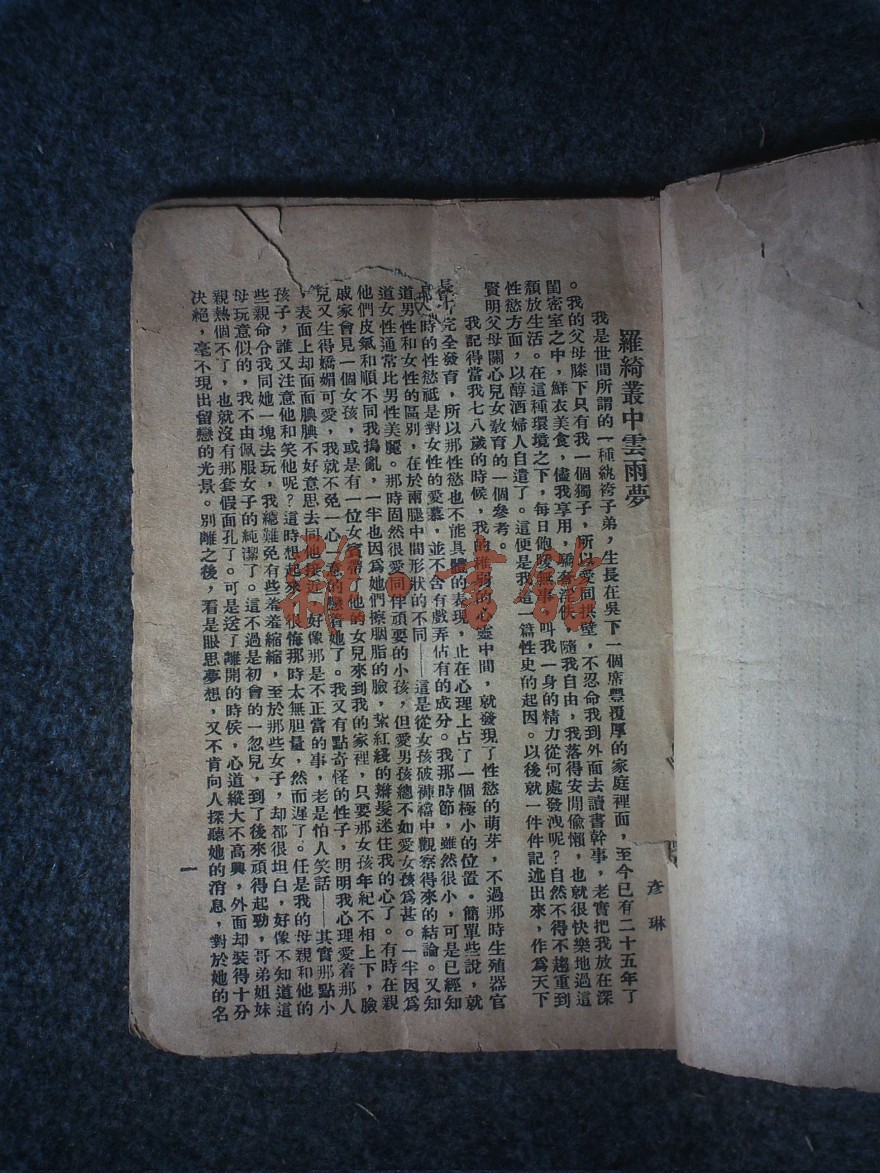 羅綺叢中雲雨夢
彥琳
我是世間所謂的一種紈袴子弟，生長在吳下一個席豐覆厚的家庭裡面，至今已有二十五年了
。我的父母膝下只有我一個獨子，所以愛同拱壁，不忍命我到外面去讀書幹事，老實把我放在深
閨密室之中，鮮衣美食，儘我享用，驕奢淫佚，隨我自由，我落得安閒偷懶，也就很快樂地過這
頹放生活。在這種環境之下，每日飽暖無事，叫我一身的精力從何處發洩呢？自然不得不趨重到
性慾方面，以醇酒婦人自遣了。這便是我這一篇性史的起因。以後就一件件記述出來，作爲天下
賢明父母關心兒女敎育的一個參考。
我記得當我七八歲的時候，我的稚弱的心靈中間，就發現了性慾的萌芽，不過那時生殖器官
完全發育，所以那性慾也不能具體的表現，止在心理上占了一個極小的位置。簡單些說，就
時的性慾祇是對女性的愛慕，並不含有戲弄佔有的成分。我那時節，雖然很小，可是已經知
道男性和女性的區別，在於兩腿中間形狀的不同——這是從女孩破褲襠中觀察得來的結論。又知
道女性通常比男性美麗。那時固然很愛同伴頑要的小孩，但愛男孩總不如愛女孩爲甚。一半因爲
他們皮氣和順不同我搗亂，一半也因爲她們擦胭脂的臉，紮紅綫的辮髮迷住我的心了。有時在親
戚家會見一個女孩，或是有一位女賓帶了他的女兒來到我的家裡，只要那女孩年紀不相上下，臉
兒又生得嬌媚可愛，我就不免一心一意的戀着她了。我又有點奇怪的性子，明明我心理愛着那人
，表面上却面面腆腆不好意思去同他接近，好像那是不正當的事，老是怕人笑話——其實那點小
孩子，誰又注意他和笑他呢？這時想起來，很悔那時太無胆量，然而遲了。任是我的母親和他的
些親命令我同她一塊去玩，我總難免有些羞羞縮縮，至於那些女子，却都很坦白，好像不知道這
母玩意似的，我不由佩服女子的純潔了。這不過是初會的一忽兒，到了後來頑得起勁，哥弟姐妹
親熱個不了，也就沒有那套假面孔了。可是送了離開的時侯，心道縱大不高興，外面却裝得十分
决絕，毫不現出留戀的光景。別離之後，看是眼思夢想，又不肯向人探聽她的消息，對於她的名
一
雜·書館